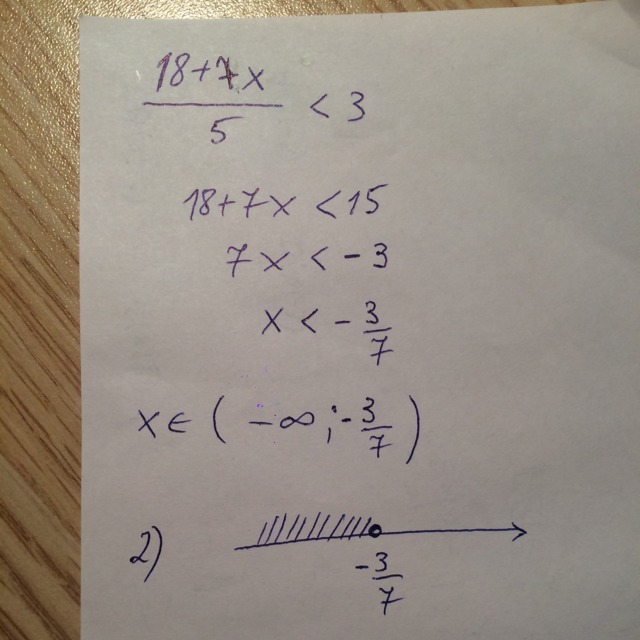 18+7x
5
< 3
18+7x < 15
7x < - 3
x < - 3/7
x ∈ ( -∞ ; - 3/7 )
2)
- 3/7